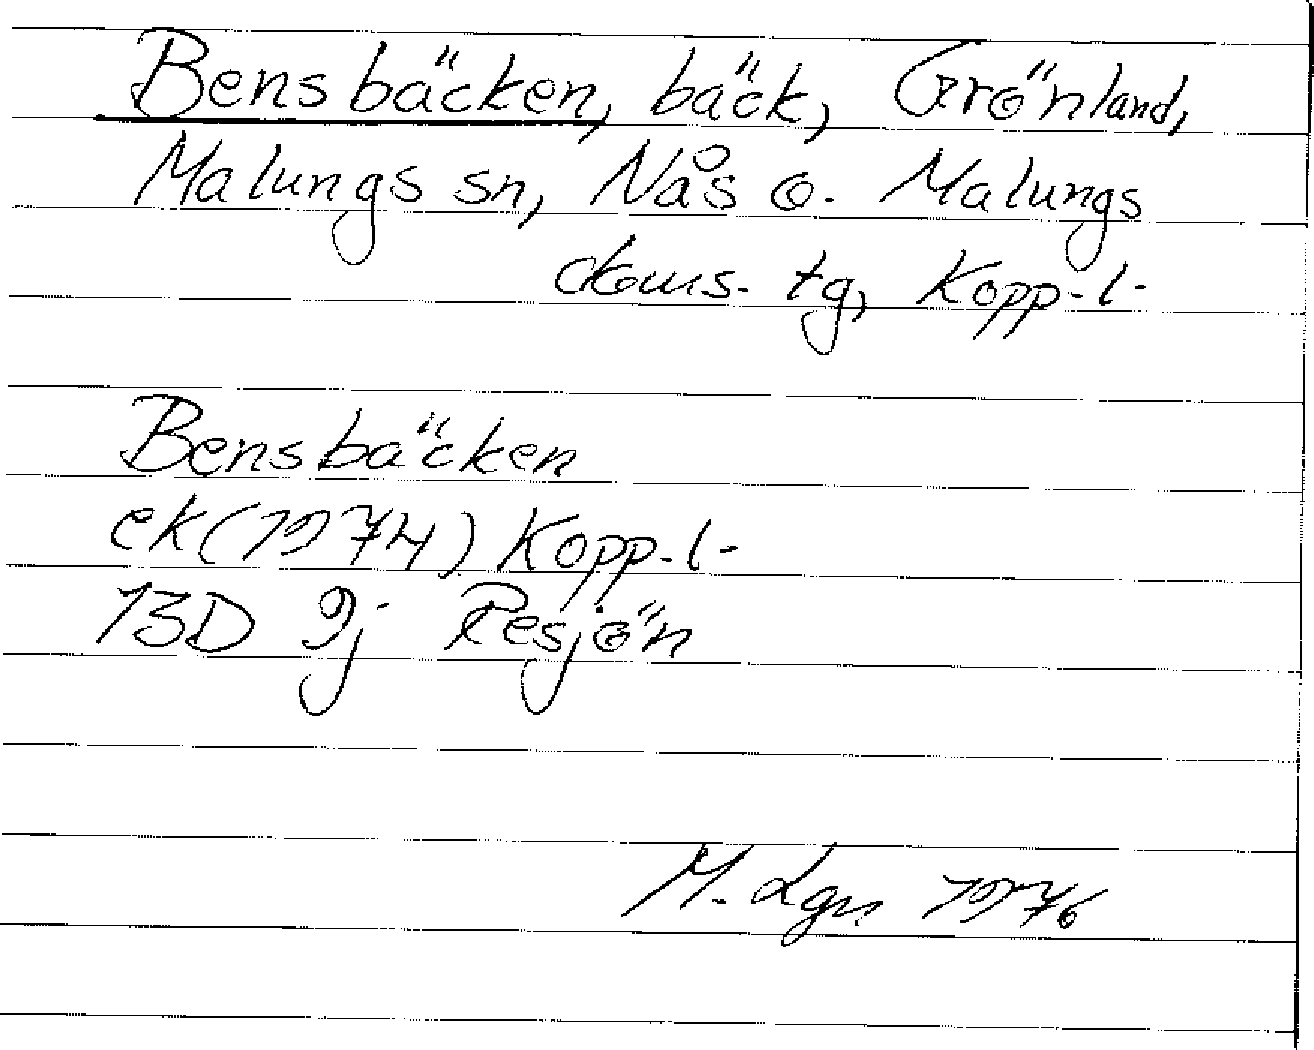 Bensbäcken, bäck, Grönland,
Malungs sn, Nås o. Malungs
doms. tg, Kopp. l.
Bensbäcken
ek (1974) Kopp. l.
13D 9j Resjön
M. Lgn 1976